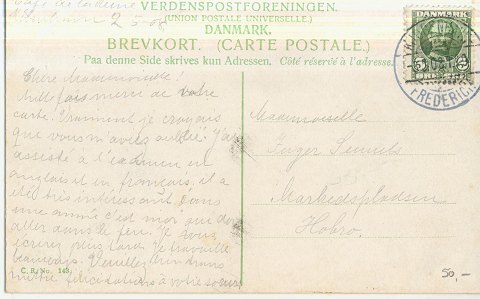 VERDENSPOSTFORENINGEN.
(UNION POSTALE UNIVERSELLE.)
DANMARK.
BREVKORT. (CARTE POSTALE.)
Paa denne Side skrives kun Adressen. Côté réservé à l'adresse.
DANMARK
5 5
ØRE
FREDERICIA
Chère Mademoiselle!
Mille fois merci de votre
carte. Vraiment je croyais
que vous m'aviez oublié. J'ai
assisté à l'examen en
anglais et en français, il a
été très intéressant. Dans
une année c'est moi qui dois
aller dans le feu. Je vous
écrirez plus tard. Je travaille
beaucoup. Veuillez
félicitations à votre soeur
Mademoiselle
Inger
Markedspladsen
Hobro.
C. R. No. 143.
50,-